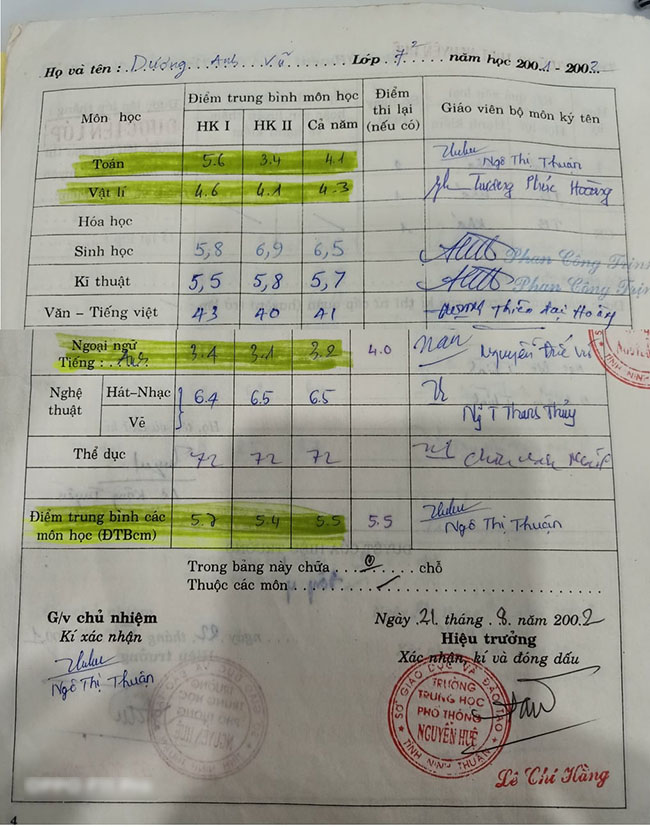 Họ và tên : Dương Anh Vũ Lớp 7² năm học 2001 - 2002
Môn học
Điểm trung bình môn học
HK I HK II Cả năm
Điểm thi lại (nếu có)
Giáo viên bộ môn ký tên
Toán 5.6 3.4 4.1 Ngô Thị Thuận
Vật lí 4.6 4.1 4.3 Trương Phúc Hoàng
Hóa học
Sinh học 5,8 6,9 6,5 Phan Công Trịnh
Kĩ thuật 5,5 5,8 5,7 Phan Công Trịnh
Văn – Tiếng việt 43 40 41 Thiên Đại Hoàng
Ngoại ngữ
Tiếng : Anh 3.4 3.1 3.2 4.0 Nguyễn
Nghệ thuật
Hát–Nhạc 6.4 6.5 6.5
Vẽ
Ng T Thanh Thủy
Thể dục 72 72 72
Điểm trung bình các
môn học (ĐTBcm) 5.7 5.4 5.5 5.5 Ngô Thị Thuận
Trong bảng này chữa ...0... chỗ
Thuộc các môn
G/v chủ nhiệm
Kí xác nhận
Ngô Thị Thuận
Ngày 21 tháng 8 năm 2002
Hiệu trưởng
Xác nhận, kí và đóng dấu
SỞ GIÁO DỤC VÀ ĐÀO TẠO
TRƯỜNG
TRUNG HỌC
PHỔ THÔNG
NGUYỄN HUỆ
TỈNH NINH THUẬN
Lê Chí Hằng
4